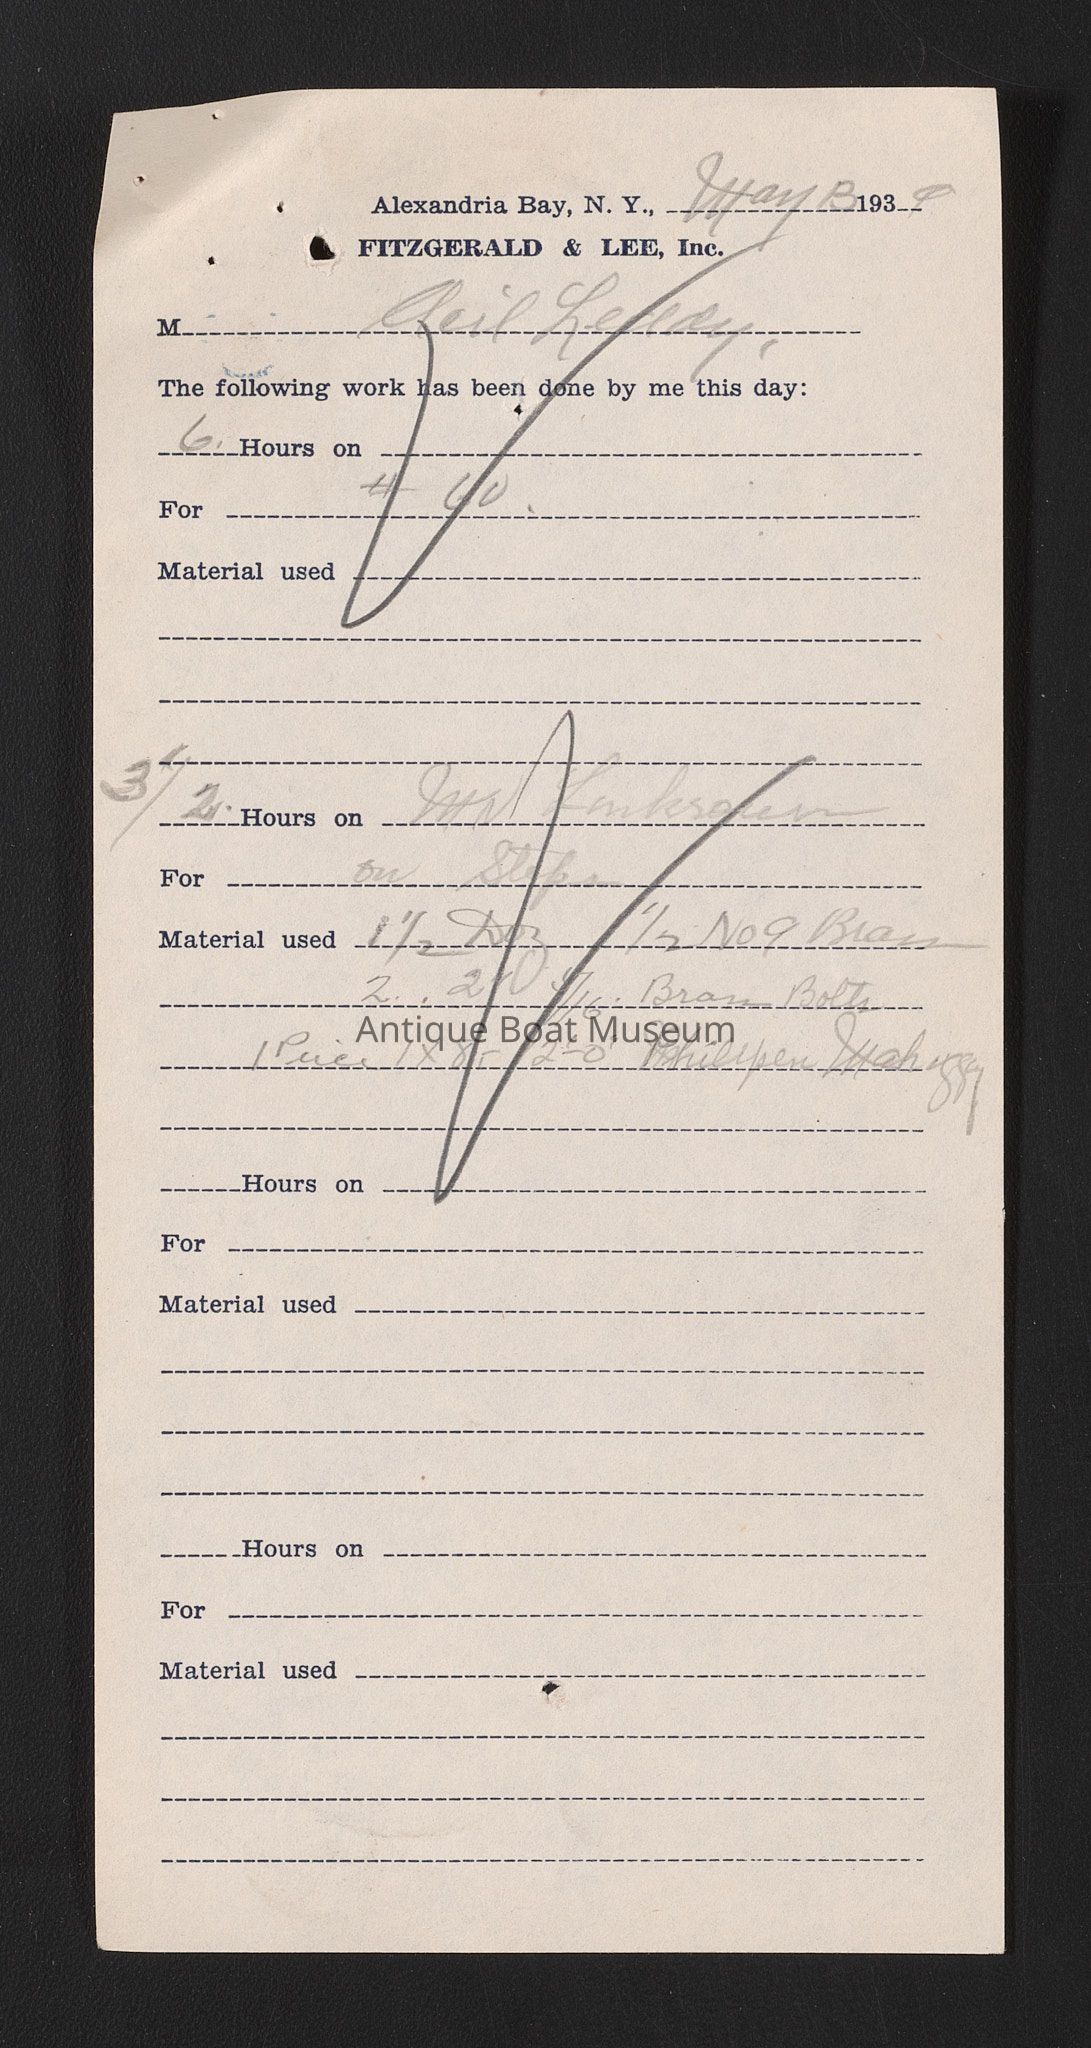 Alexandria Bay, N. Y., May 13 1939
FITZGERALD & LEE, Inc.
M
The following work has been done by me this day:
6. Hours on
For # 60.
Material used
3 1/2. Hours on Mr
For on Steps
Material used 1 1/2 Doz 1 1/2 No 9 Brass
2. 5/16. Brass Bolts
Antique Boat Museum
1 Piece 1 x 8 - 12-0
Hours on
For
Material used
Hours on
For
Material used